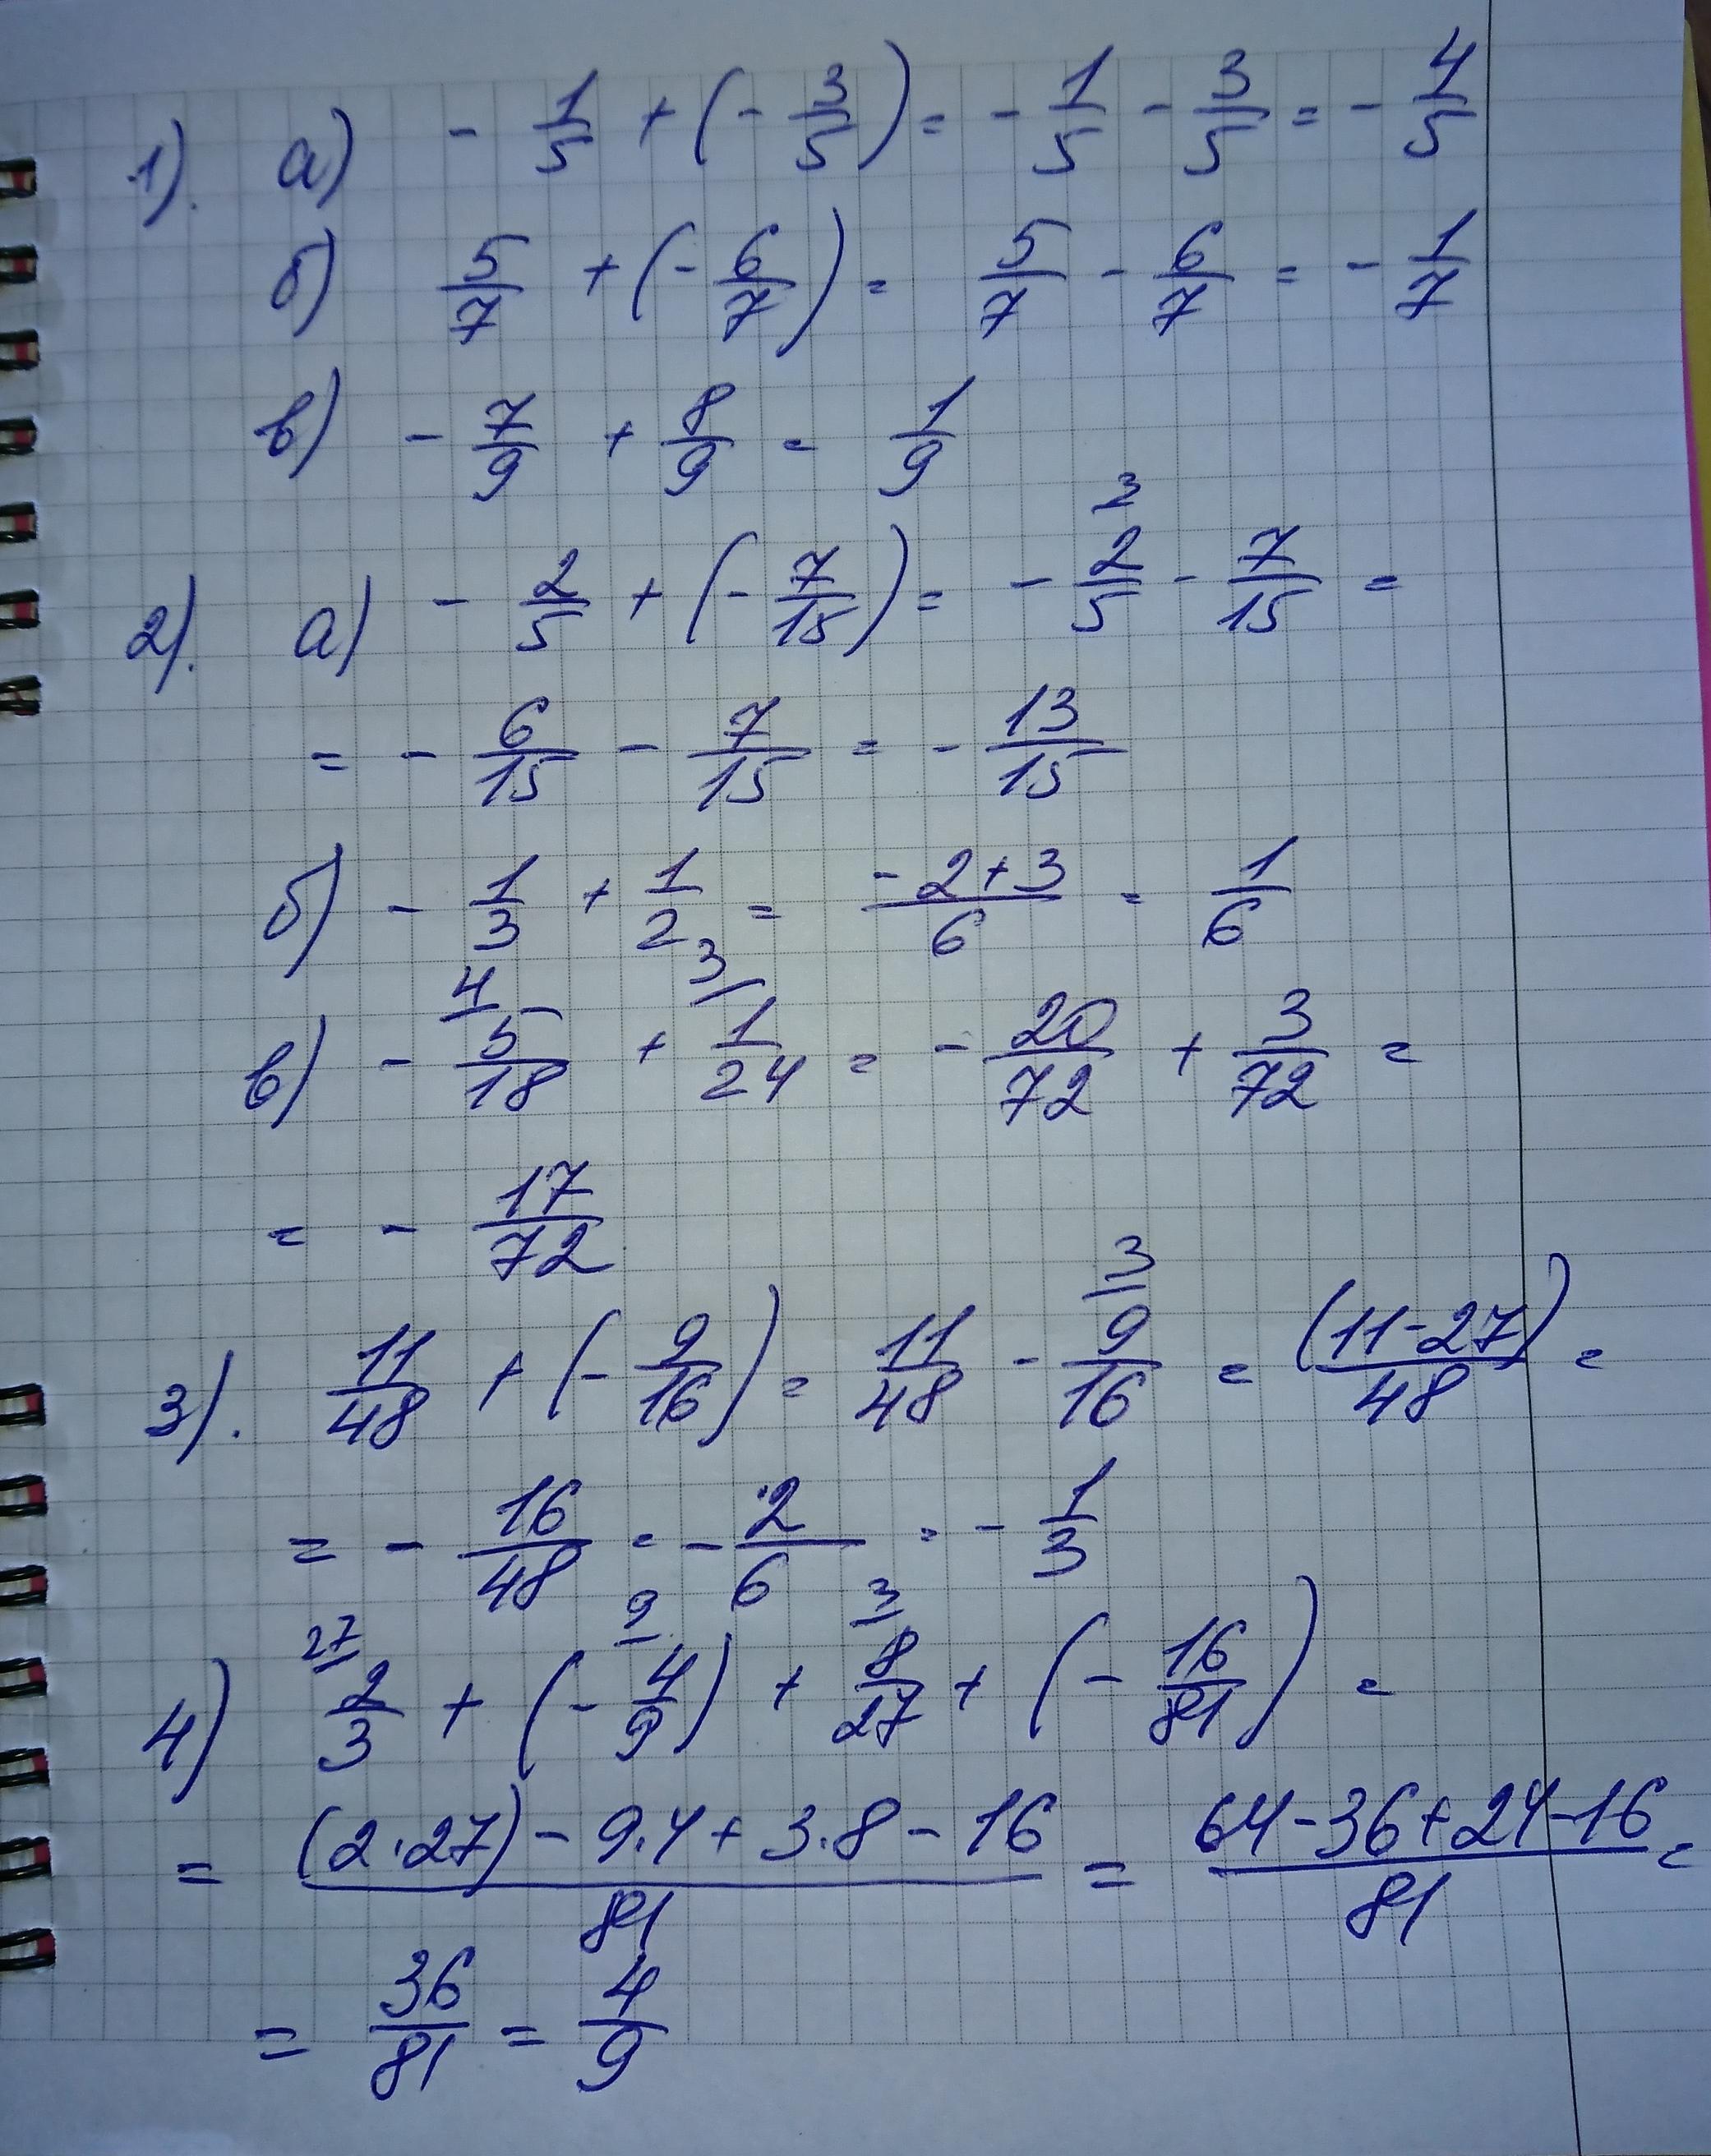 1). а) - 1/5 + (- 3/5) = - 1/5 - 3/5 = - 4/5
б) 5/7 + (- 6/7) = 5/7 - 6/7 = - 1/7
в) - 7/9 + 8/9 = 1/9
3
2). а) - 2/5 + (- 7/15) = - 2/5 - 7/15 =
= - 6/15 - 7/15 = - 13/15
б) - 1/3 + 1/2 = (-2+3)/6 = 1/6
4 3
в) - 5/18 + 1/24 = - 20/72 + 3/72 =
= - 17/72
3
3). 11/48 + (- 9/16) = 11/48 - 9/16 = (11-27)/48 =
= - 16/48 = - 2/6 = - 1/3
27 9 3
4) 2/3 + (- 4/9) + 8/27 + (- 16/81) =
= ((2·27) - 9·4 + 3·8 - 16)/81 = (64-36+24-16)/81 =
= 36/81 = 4/9